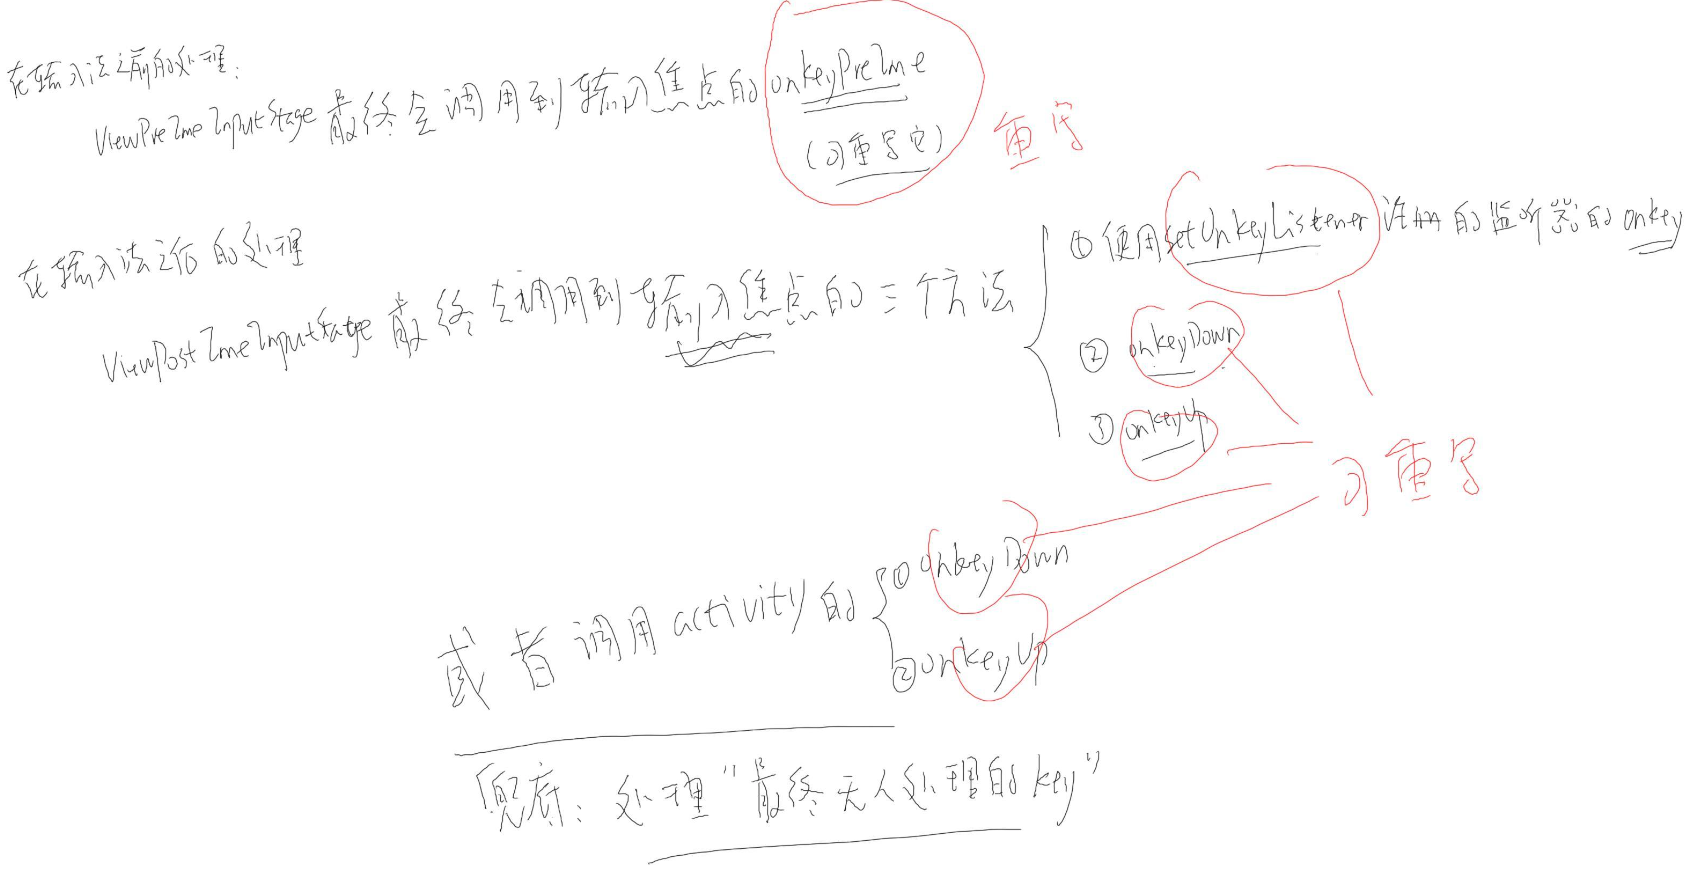 在输入法之前的处理:
ViewPreImeInputStage 最终会调用到输入焦点的 onKeyPreIme
(可重写它)
重写
在输入法之后的处理
ViewPostImeInputStage 最终会调用到输入焦点的三个方法
① 使用setOnKeyListener 注册的监听器的 onKey
② onKeyDown
③ onKeyUp
可重写
或者调用activity的
① onKeyDown
② onKeyUp
兜底: 处理"最终无人处理的key"